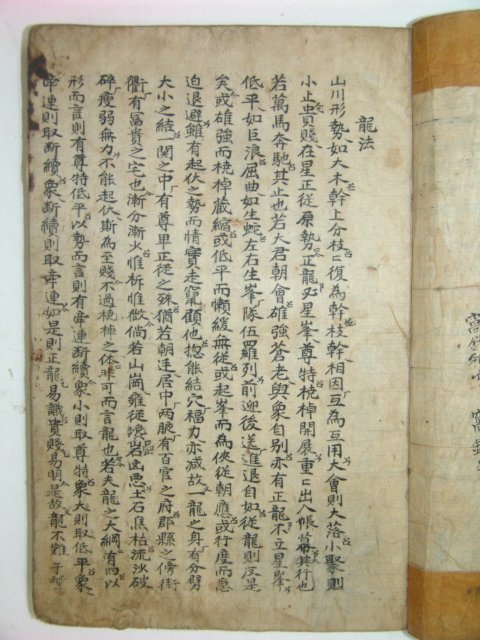 龍法
山川形勢如大木幹上分枝〻復為幹枝幹相因互為互用大會則大落小聚則
小止貴賤在星正從原執正龍必星峯尊特橈棹開展重〻出入帳幕其行也
若萬馬奔馳其止也若大君朝會雄強蒼老與衆自別亦有正龍不立星峯
低平如巨浪屈曲如生蛇左右生峯隊伍羅列前迎後送進退自如從龍則反是
矣或雄強而橈棹藏縮或低平而懶緩無從或起峯而為俠從朝應或行度而
迫退避雖有起伏之勢而情實走竄顧他揔能結穴福力亦减故一龍之身有分劈
大小之結一関之中有尊卑正從之殊猶若朝廷居中兩腋有百官之府郡縣之傍街
衢有冨貴之宅也漸分漸火惟柝惟倘若山岡雍從巉岩凶悪土石焦枯流沙破
碎瘦弱無力不能起伏斯為至賤不過橈棹之体可而言龍也若夫龍之大綱有四以
形而言則有尊特低平以勢而言則有牽連断續衆小則取尊特衆大則取低平衆
牽連則取断續衆断續則取牽連如是則正龍易識貴賤易明是故龍不難于